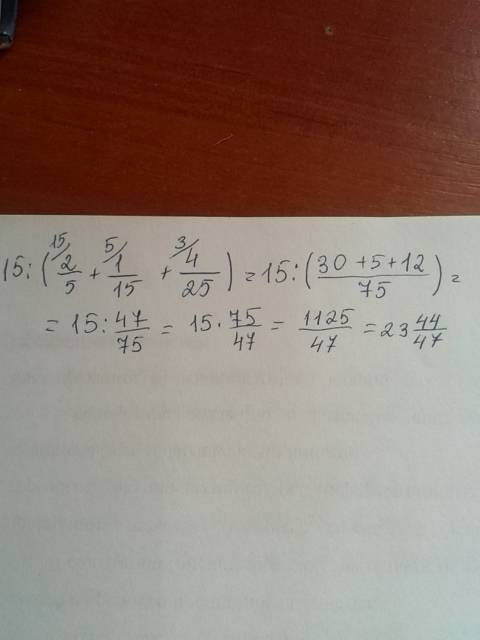 15:(15/ 2/5 + 5/ 1/15 + 3/ 4/25) = 15:((30+5+12)/75) =
= 15: 47/75 = 15· 75/47 = 1125/47 = 23 44/47